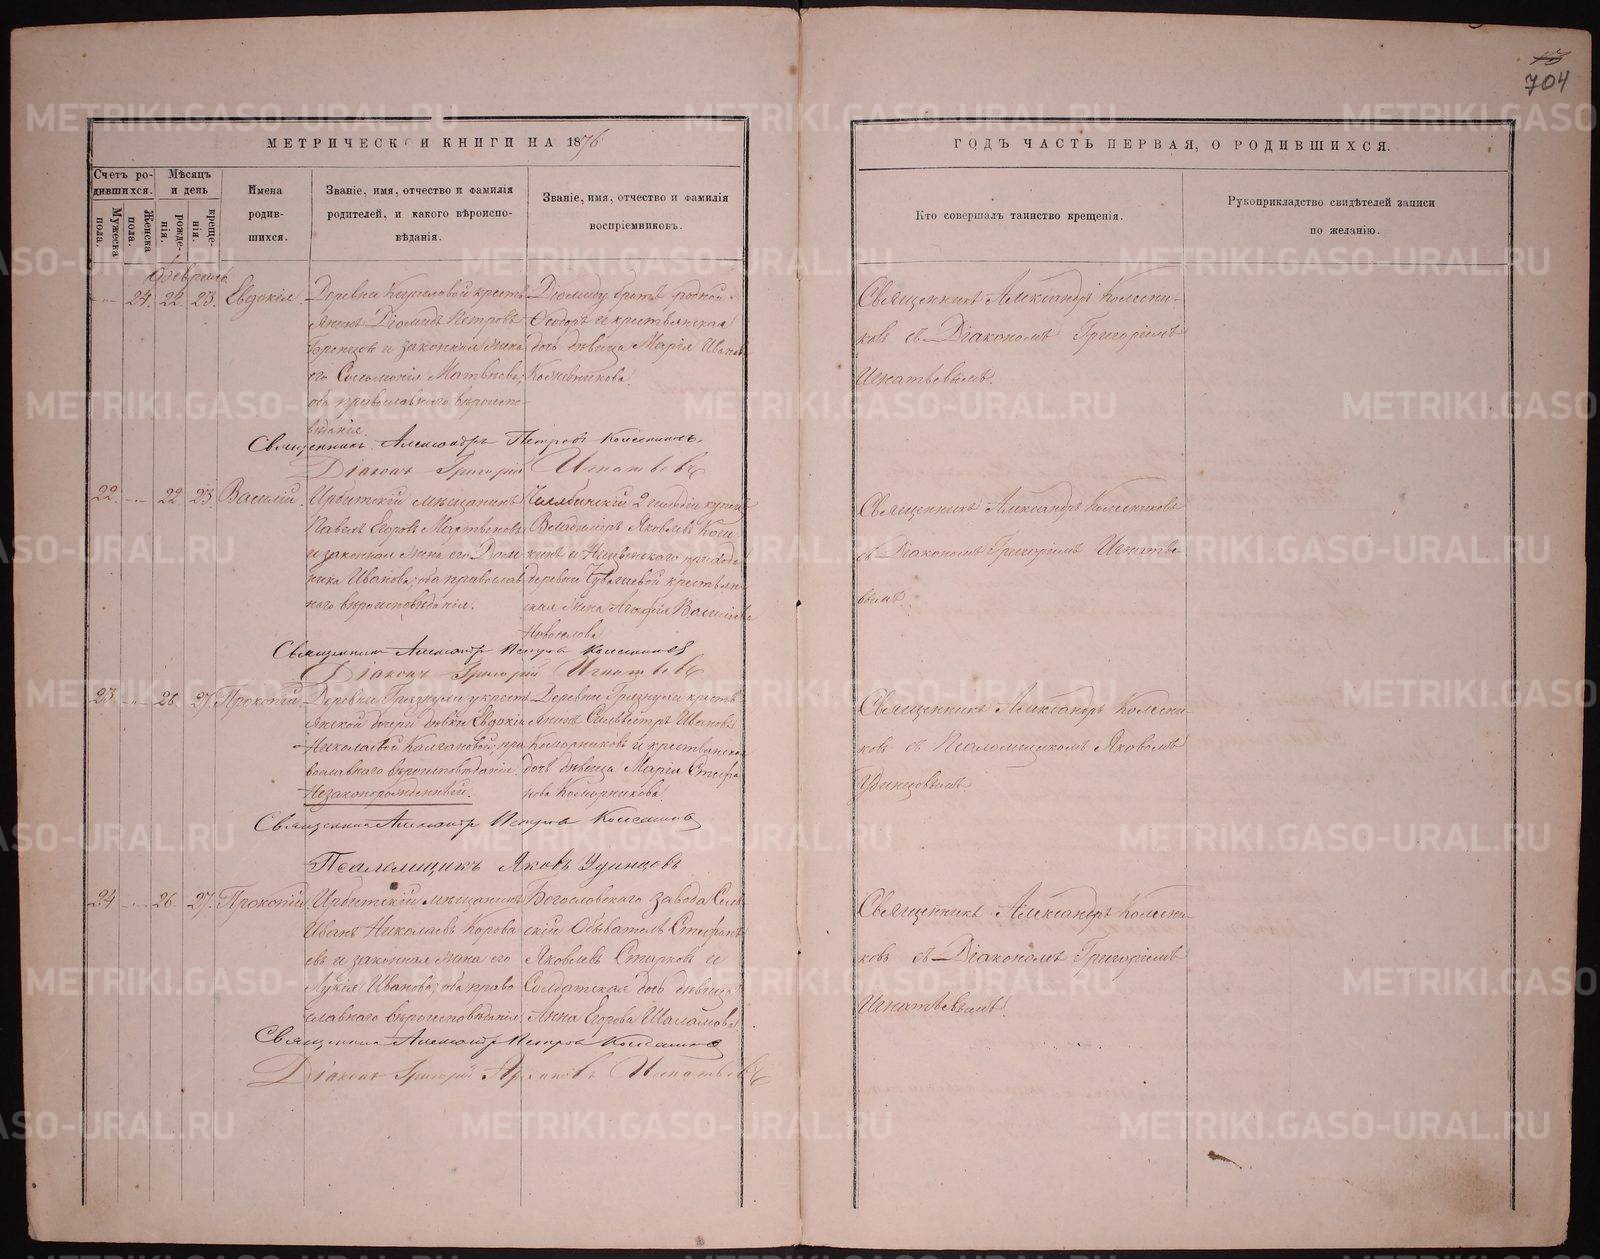 13
704
МЕТРИЧЕСК И КНИГИ НА 1876
ГОДЪ ЧАСТЬ ПЕРВАЯ, О РОДИВШИХСЯ.
Счетъ ро-
дившихся.
Мужеска
пола.
Женска
пола.
Мѣсяцъ
и день
рожде-
нія.
креще-
нія.
Имена
родив-
шихся.
Званіе, имя, отчество и фамилія
родителей, и какого вѣроиспо-
вѣданія.
Званіе, имя, отчество и фамилія
воспріемниковъ.
Кто совершалъ таинство крещенія.
Рукоприкладство свидѣтелей записи
по желанію.
Февраль
24. 22. 23. Евдокія
Деревни Кириловой кресть
янинъ Діомидъ Петровъ
и законная жена
его Соломонія Матвѣева;
оба православнаго вѣроиспо-
вѣданія.
Діомиду братъ родной
Ѳеодоръ и крестьянская
дочь дѣвица Марія Иванов
Кочевникова.
Священникъ Александръ Колесни-
ковъ съ Діакономъ Григоріемъ
Игнатьевымъ.
Священникъ Александръ Петровъ Колесниковъ.
Діаконъ Григорій Игнатьевъ
22 22 23 Василій.
Ирбитскій мѣщанинъ
Павелъ Егоровъ Мартьновъ
и законная жена его Дом
ника Иванова; оба православ
наго вѣроисповѣданія.
Челябинскій 2 гильдіи купец
Владимиръ Яковлевъ
и Ницинскаго прихода
деревни Чувашевой крестьян
ская жена Агафія Василіева
Новоселова
Священникъ Александръ Колесниковъ
съ Діакономъ Григоріемъ Игнатье
вымъ
Священникъ Александръ Петровъ Колесниковъ
Діаконъ Григорій Игнатьевъ
23 26. 27. Прокопій
Деревни Грязнухи у крест
янской дочери дѣвки Евдокіи
Николаевой Калгановой, пра
вославнаго вѣроисповѣданія
Незаконорожденный.
Деревни Грязнухи кресть
янинъ Сильвестръ Ивановъ
Коморниковъ и крестьянская
дочь дѣвица Марія Стефа
нова Коморникова
Священникъ Александръ Колесни-
ковъ съ Псаломщикомъ Яковомъ
Удинцовымъ.
Священникъ Александръ Петровъ Колесниковъ
Псаломщикъ Яковъ Удинцовъ
24 26. 27. Прокопій
Ирбитскій мѣщанинъ
Иванъ Николаевъ Корова
евъ и законная жена его
Лукія Иванова; оба право
славнаго вѣроисповѣданія.
Богословскаго завода Сель
скій Обыватель Стефанъ
Яковлевъ Старковъ и
Солдатская дочь дѣвица
Анна Егорова Шаламова
Священникъ Александръ Колесни-
ковъ съ Діакономъ Григоріемъ
Игнатьевымъ
Священникъ Александръ Петровъ Колесниковъ
Діаконъ Григорій Игнатьевъ
METRIKI.GASO-URAL.RU